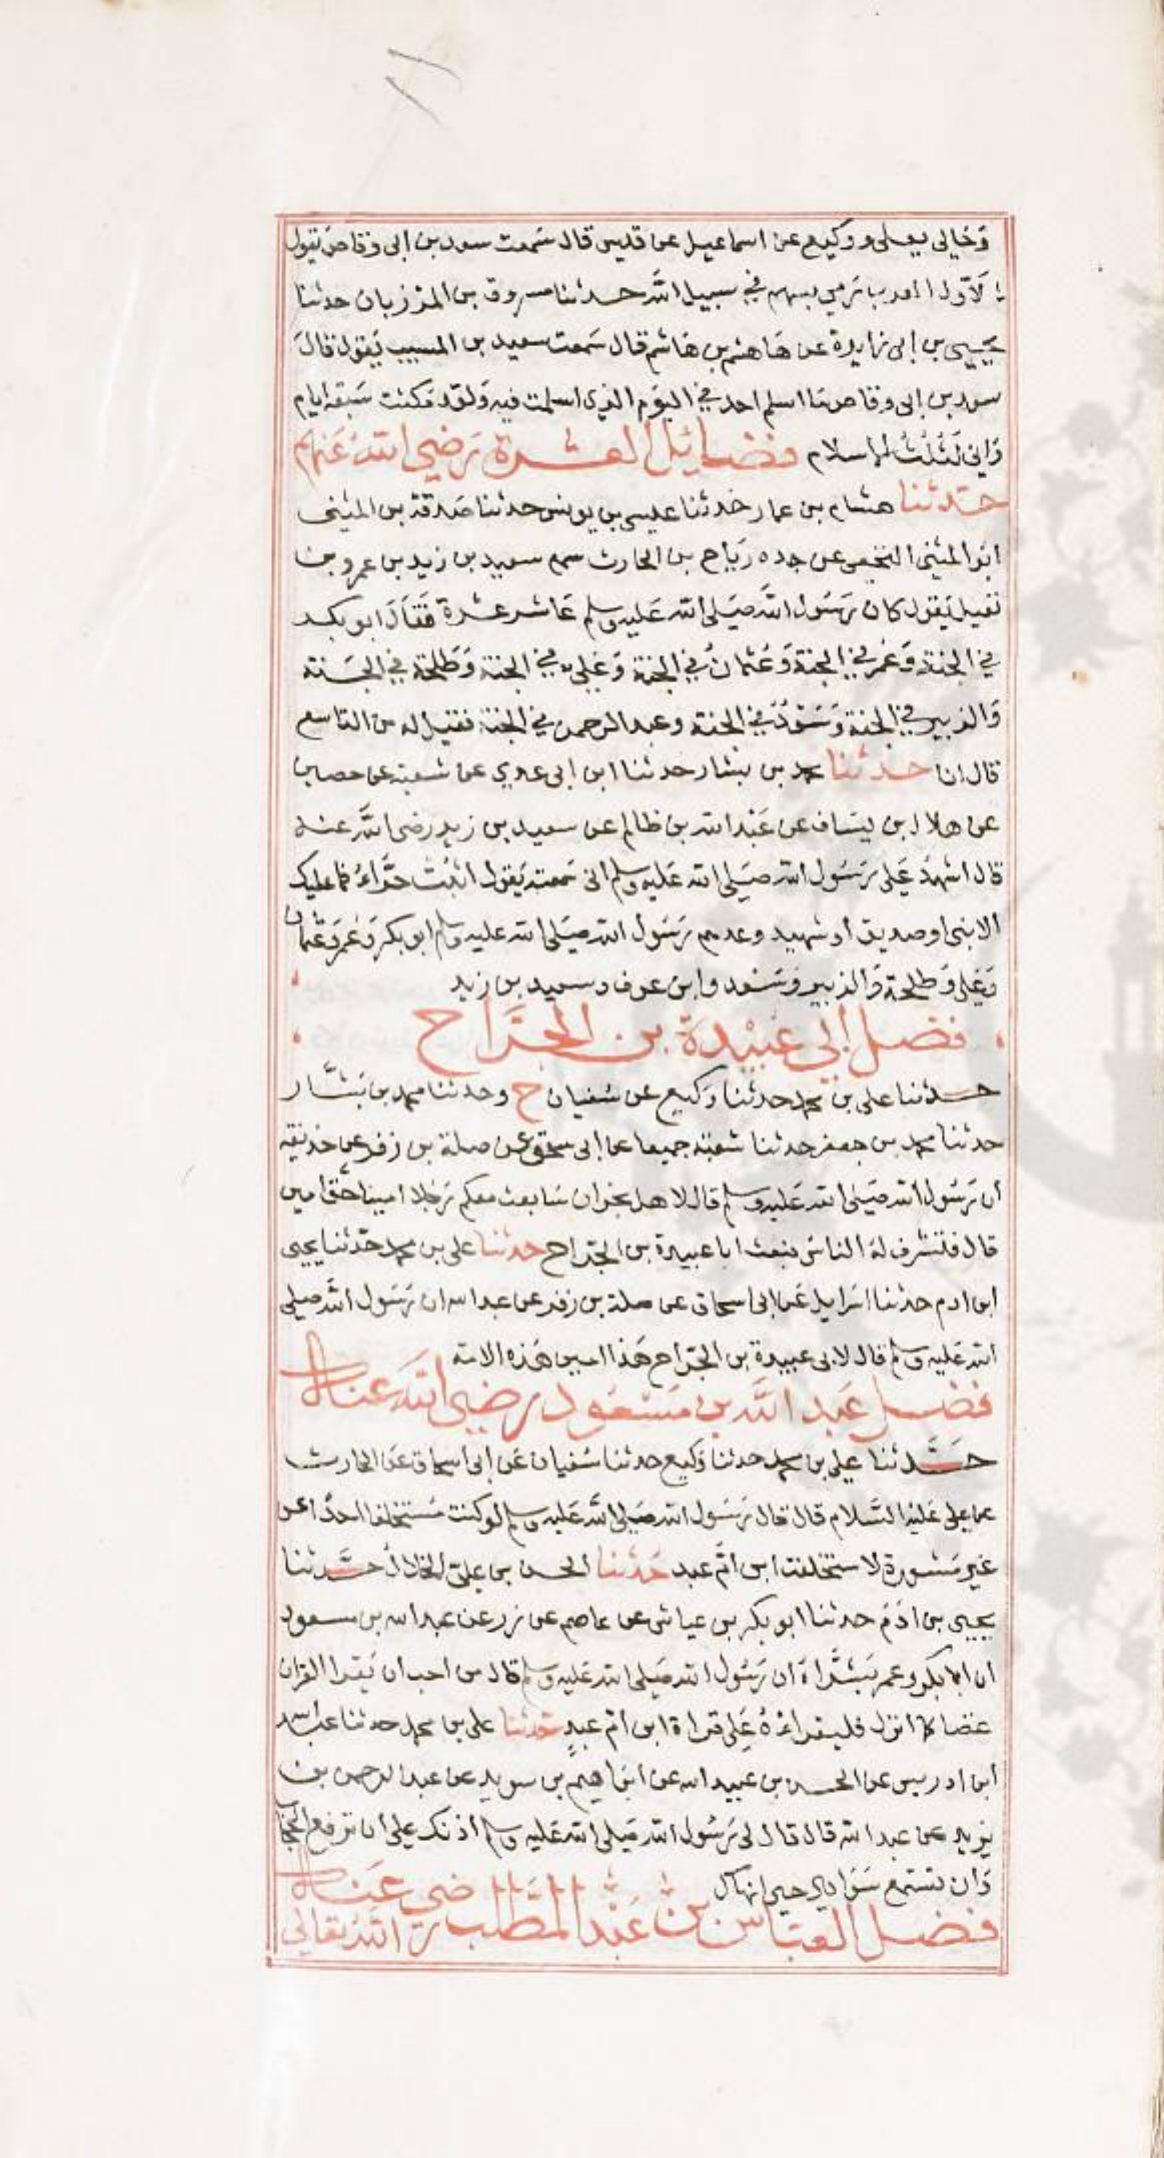 وخالي يعلى ووكيع عن اسماعيل عن قيس قال سمعت سعد بن ابى وقاص يقول
لاول العرب رمي بسهم في سبيل الله حدثنا مسروق بن المرزبان حدثنا
يحيى بن ابى زايدة عن هاشم بن هاشم قال سمعت سعيد بن المسيب يقول قال
سعد بن ابى وقاص ما اسلم احد في اليوم الذي اسلمت فيه ولقد مكثت سبعة ايام
واني لثلث الاسلام فضائل العشرة رضي الله عنهم
حدثنا هشام بن عمار حدثنا عيسى بن يونس حدثنا صدقة بن المثنى
ابو المثنى النخعي عن جده رياح بن الحارث سمع سعيد بن زيد بن عمرو بن
نفيل يقول كان رسول الله صلى الله عليه وسلم عاشر عشرة فقال ابو بكر
في الجنة وعمر في الجنة وعثمان في الجنة وعلي في الجنة وطلحة في الجنة
والزبير في الجنة وسعد في الجنة وعبد الرحمن في الجنة فقيل له من التاسع
قال انا حدثنا محمد بن بشار حدثنا ابن ابى عدي عن شعبة عن حصين
عن هلال بن يساف عن عبد الله بن ظالم عن سعيد بن زيد رضى الله عنه
قال اشهد على رسول الله صلى الله عليه وسلم انى سمعته يقول اثبت حراء فما عليك
الا نبى او صديق او شهيد وعدهم رسول الله صلى الله عليه وسلم ابو بكر وعمر وعثمان
وعلي وطلحة والزبير وسعد وابن عوف وسعيد بن زيد
فضل ابي عبيدة بن الجراح
حدثنا على بن محمد حدثنا وكيع عن سفيان ح وحدثنا محمد بن بشار
حدثنا محمد بن جعفر حدثنا شعبة جميعا عن ابى اسحق عن صلة بن زفر عن حذيفة
ان رسول الله صلى الله عليه وسلم قال لاهل نجران سابعث معكم رجلا امينا حق امين
قال فتشرف له الناس فبعث ابا عبيدة بن الجراح حدثنا على بن محمد حدثنا يحيى
ابن ادم حدثنا اسرايل عن ابى اسحاق عن صلة بن زفر عن عبد الله ان رسول الله صلى
الله عليه وسلم قال لابى عبيدة بن الجراح هذا امين هذه الامة
فضل عبد الله بن مسعود رضي الله عنه
حدثنا علي بن محمد حدثنا وكيع حدثنا سفيان عن ابى اسحاق عن الحارث
عن علي عليه السلام قال قال رسول الله صلى الله عليه وسلم لو كنت مستخلفا احدا عن
غير مشورة لاستخلفت ابن ام عبد حدثنا الحسن بن علي الخلال حدثنا
يحيى بن ادم حدثنا ابو بكر بن عياش عن عاصم عن زر عن عبد الله بن مسعود
ان ابا بكر وعمر بشراه ان رسول الله صلى الله عليه وسلم قال من احب ان يقرا القران
غضا كما انزل فليقراه على قراة ابن ام عبد حدثنا على بن محمد حدثنا عبد الله
ابن ادريس عن الحسن بن عبيد الله عن ابراهيم بن سويد عن عبد الرحمن بن
يزيد عن عبد الله قال قال لى رسول الله صلى الله عليه وسلم اذنك علي ان ترفع الحجاب
وان تستمع سوادي حتى انهاك
فضل العباس بن عبد المطلب رضي الله تعالى عنه